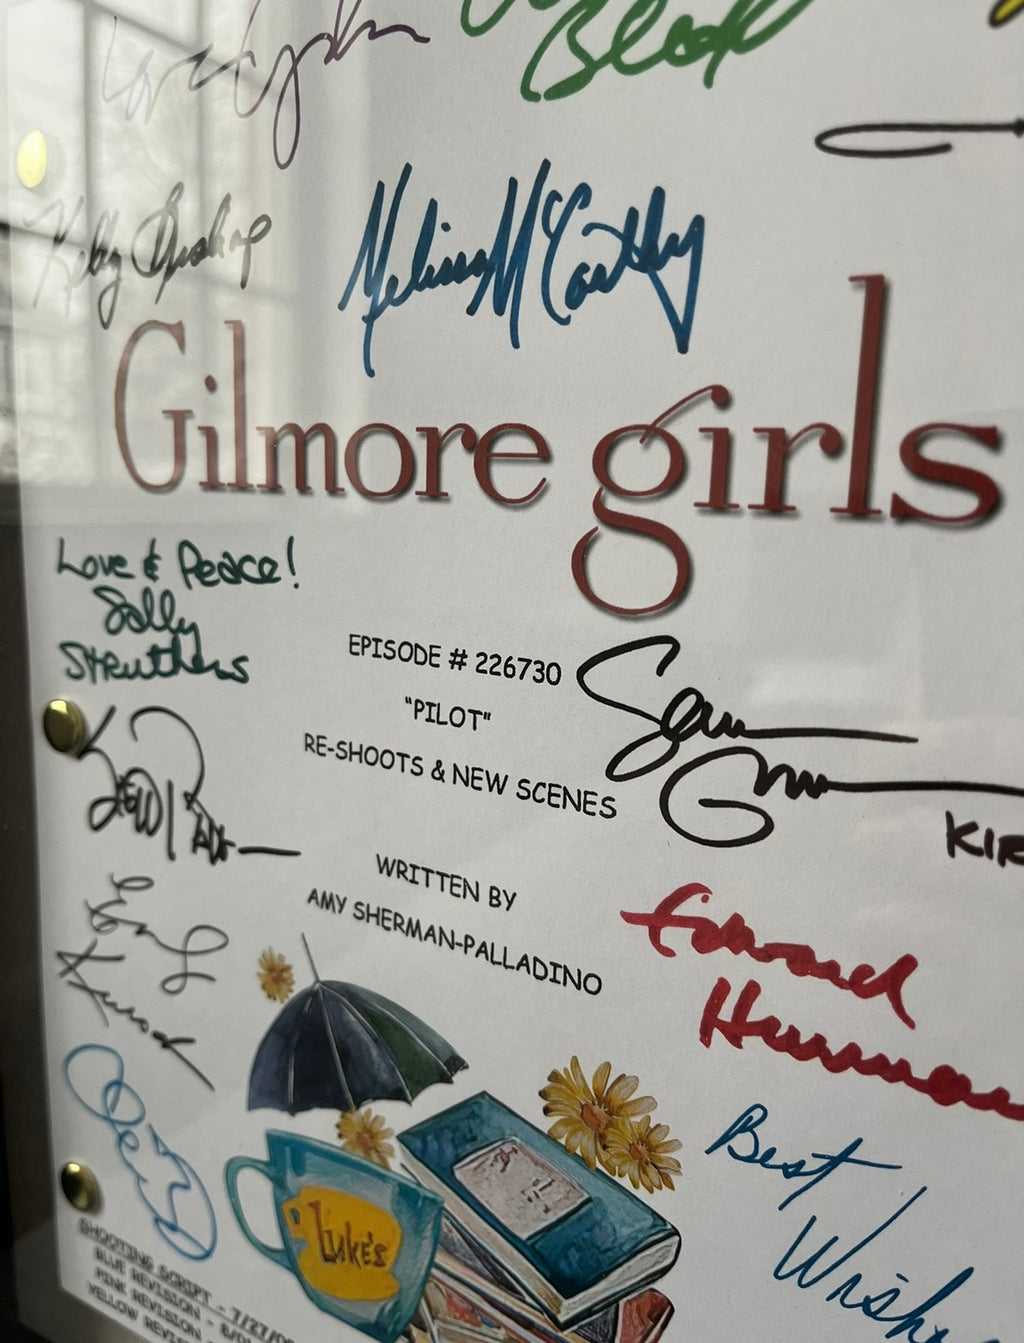 Love
Bledel
Kelly Bishop
Melissa McCarthy
Gilmore girls
Love & Peace!
Sally
Struthers
EPISODE # 226730
"PILOT"
RE-SHOOTS & NEW SCENES
Sean
Gunn
KIR
WRITTEN BY
AMY SHERMAN-PALLADINO
Edward
Herrmann
Best
Wishes
LUKE'S
SHOOTING SCRIPT - 7/27/00
BLUE REVISION - 8/0
PINK REVISION -
YELLOW REVIS